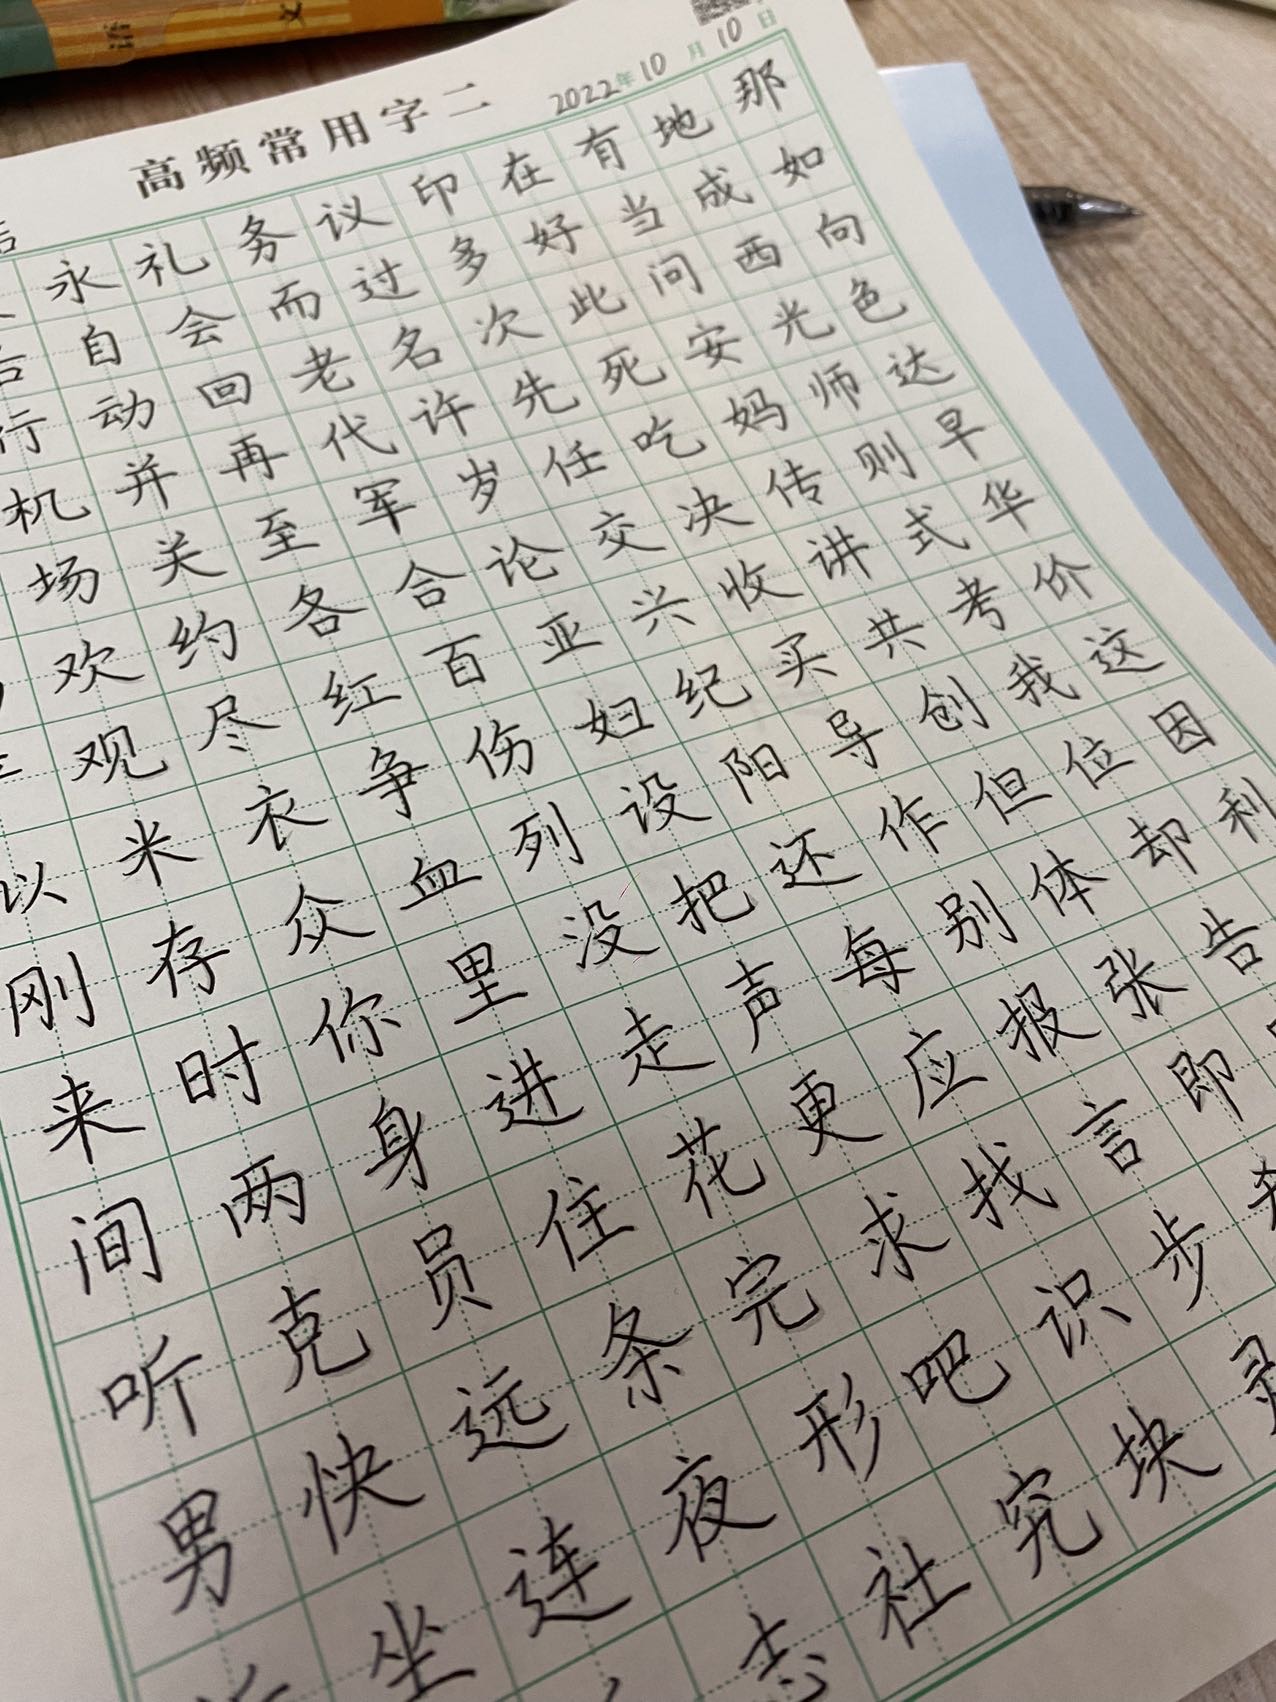 语文
高频常用字二 2022年10月10日
永礼务议印在有地那
自会而过多好当成如
行动回老名次此问西向
机并再代许先死安光色
场关至军岁任吃妈师达
欢约各合论交决传则早
观尽红百亚兴收讲式华
以米衣争伤妇纪买共考价
刚存众血列设阳导创我这
来时你里没把还作但位因
间两身进走声每别体却利
听克员住花更应报张告
男快远条完求找言即
坐连夜形吧识步
志社究块